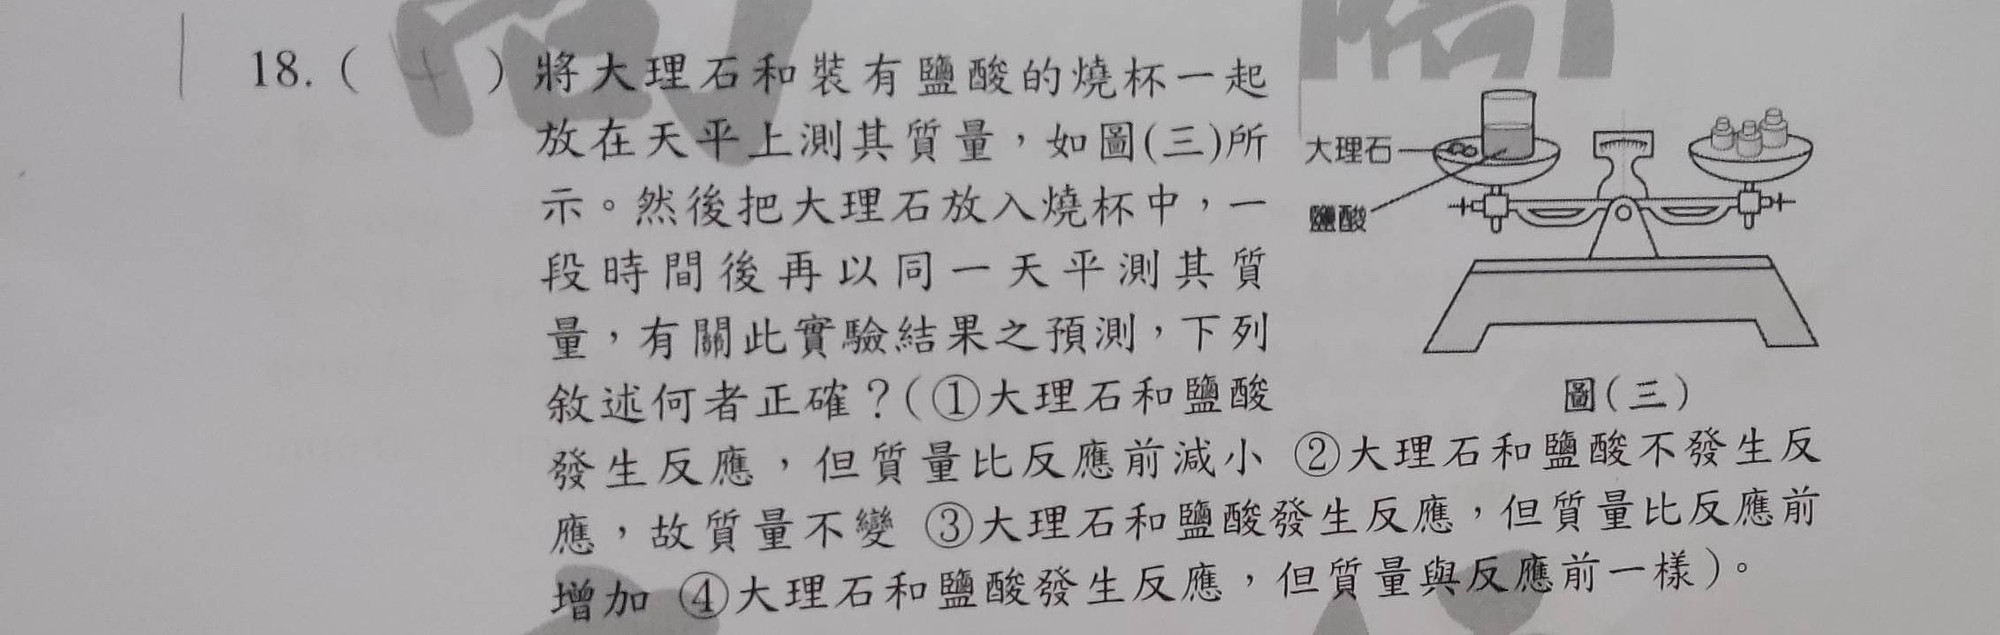 18.( )將大理石和裝有鹽酸的燒杯一起
放在天平上測其質量，如圖(三)所
示。然後把大理石放入燒杯中，一
段時間後再以同一天平測其質
量，有關此實驗結果之預測，下列
敘述何者正確？(①大理石和鹽酸
發生反應，但質量比反應前減小 ②大理石和鹽酸不發生反
應，故質量不變 ③大理石和鹽酸發生反應，但質量比反應前
增加 ④大理石和鹽酸發生反應，但質量與反應前一樣)。
大理石
鹽酸
圖(三)